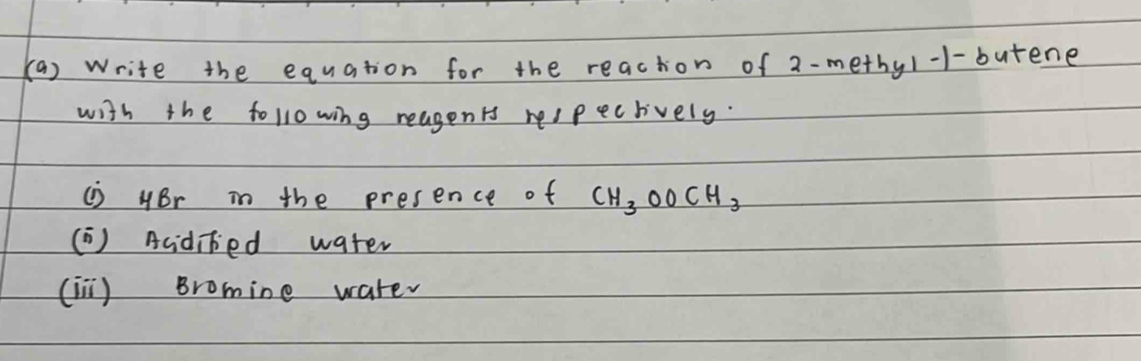 (a) Write the equation for the reaction of 2-methyl-1-butene
with the following reagents respectively.
(i) HBr in the presence of CH₃OOCH₃
(ii) Acidified water
(iii) Bromine water